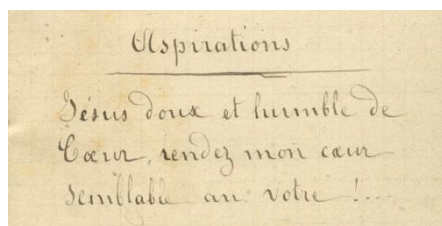 Aspirations
Jésus doux et humble de
Cœur, rendez mon cœur
semblable au votre !...